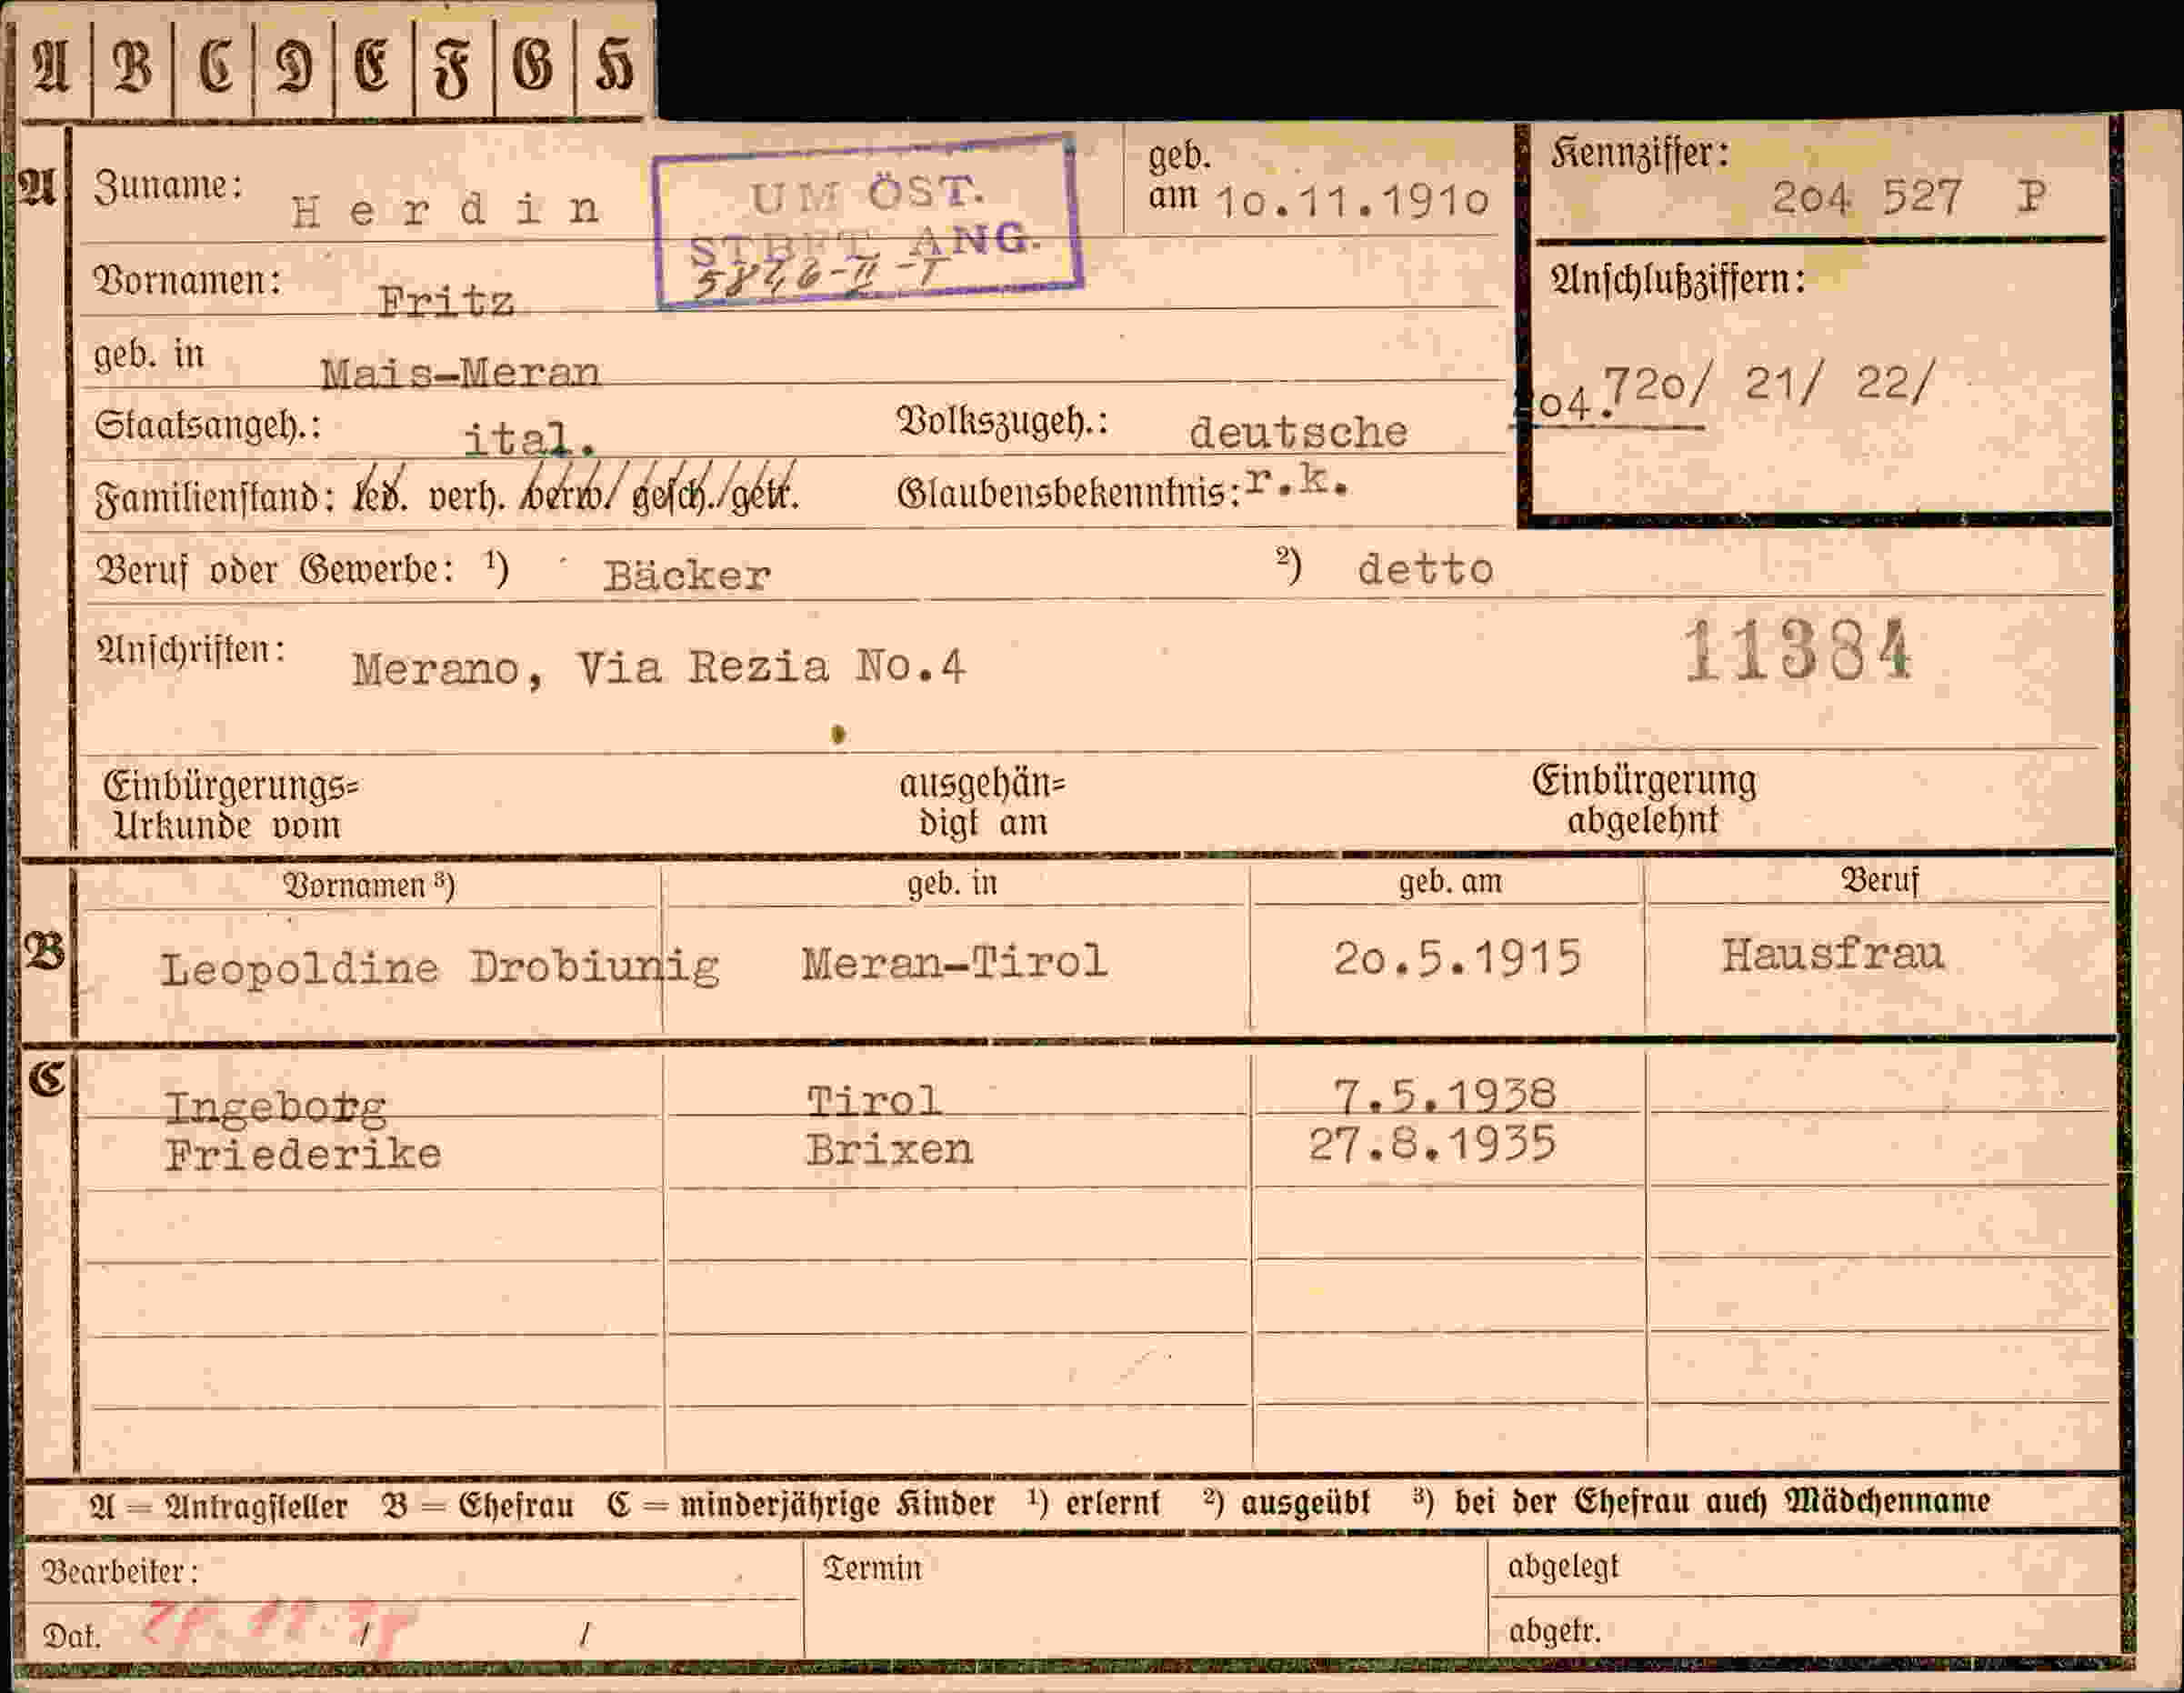 A B C D E F G H
A
Zuname: Herdin
UM ÖST.
STBFT. ANG.
geb.
am 10.11.1910
Kennziffer:
204 527 P
Vornamen: Fritz
Anschlußziffern:
04.720/ 21/ 22/
geb. in Mais-Meran
Staatsangeh.: ital. Volkszugeh.: deutsche
Familienstand: led. verh. verw. gesch./getr. Glaubensbekenntnis: r.k.
Beruf oder Gewerbe: ¹) Bäcker ²) detto
Anschriften: Merano, Via Rezia No.4
11384
Einbürgerungs= ausgehän= Einbürgerung
Urkunde vom digt am abgelehnt
Vornamen ³) geb. in geb. am Beruf
B Leopoldine Drobiunig Meran-Tirol 20.5.1915 Hausfrau
C Ingeborg Tirol 7.5.1938
Friederike Brixen 27.8.1935
A = Antragsteller B = Ehefrau C = minderjährige Kinder ¹) erlernt ²) ausgeübt ³) bei der Ehefrau auch Mädchenname
Bearbeiter: Termin abgelegt
Dat. / / abgetr.